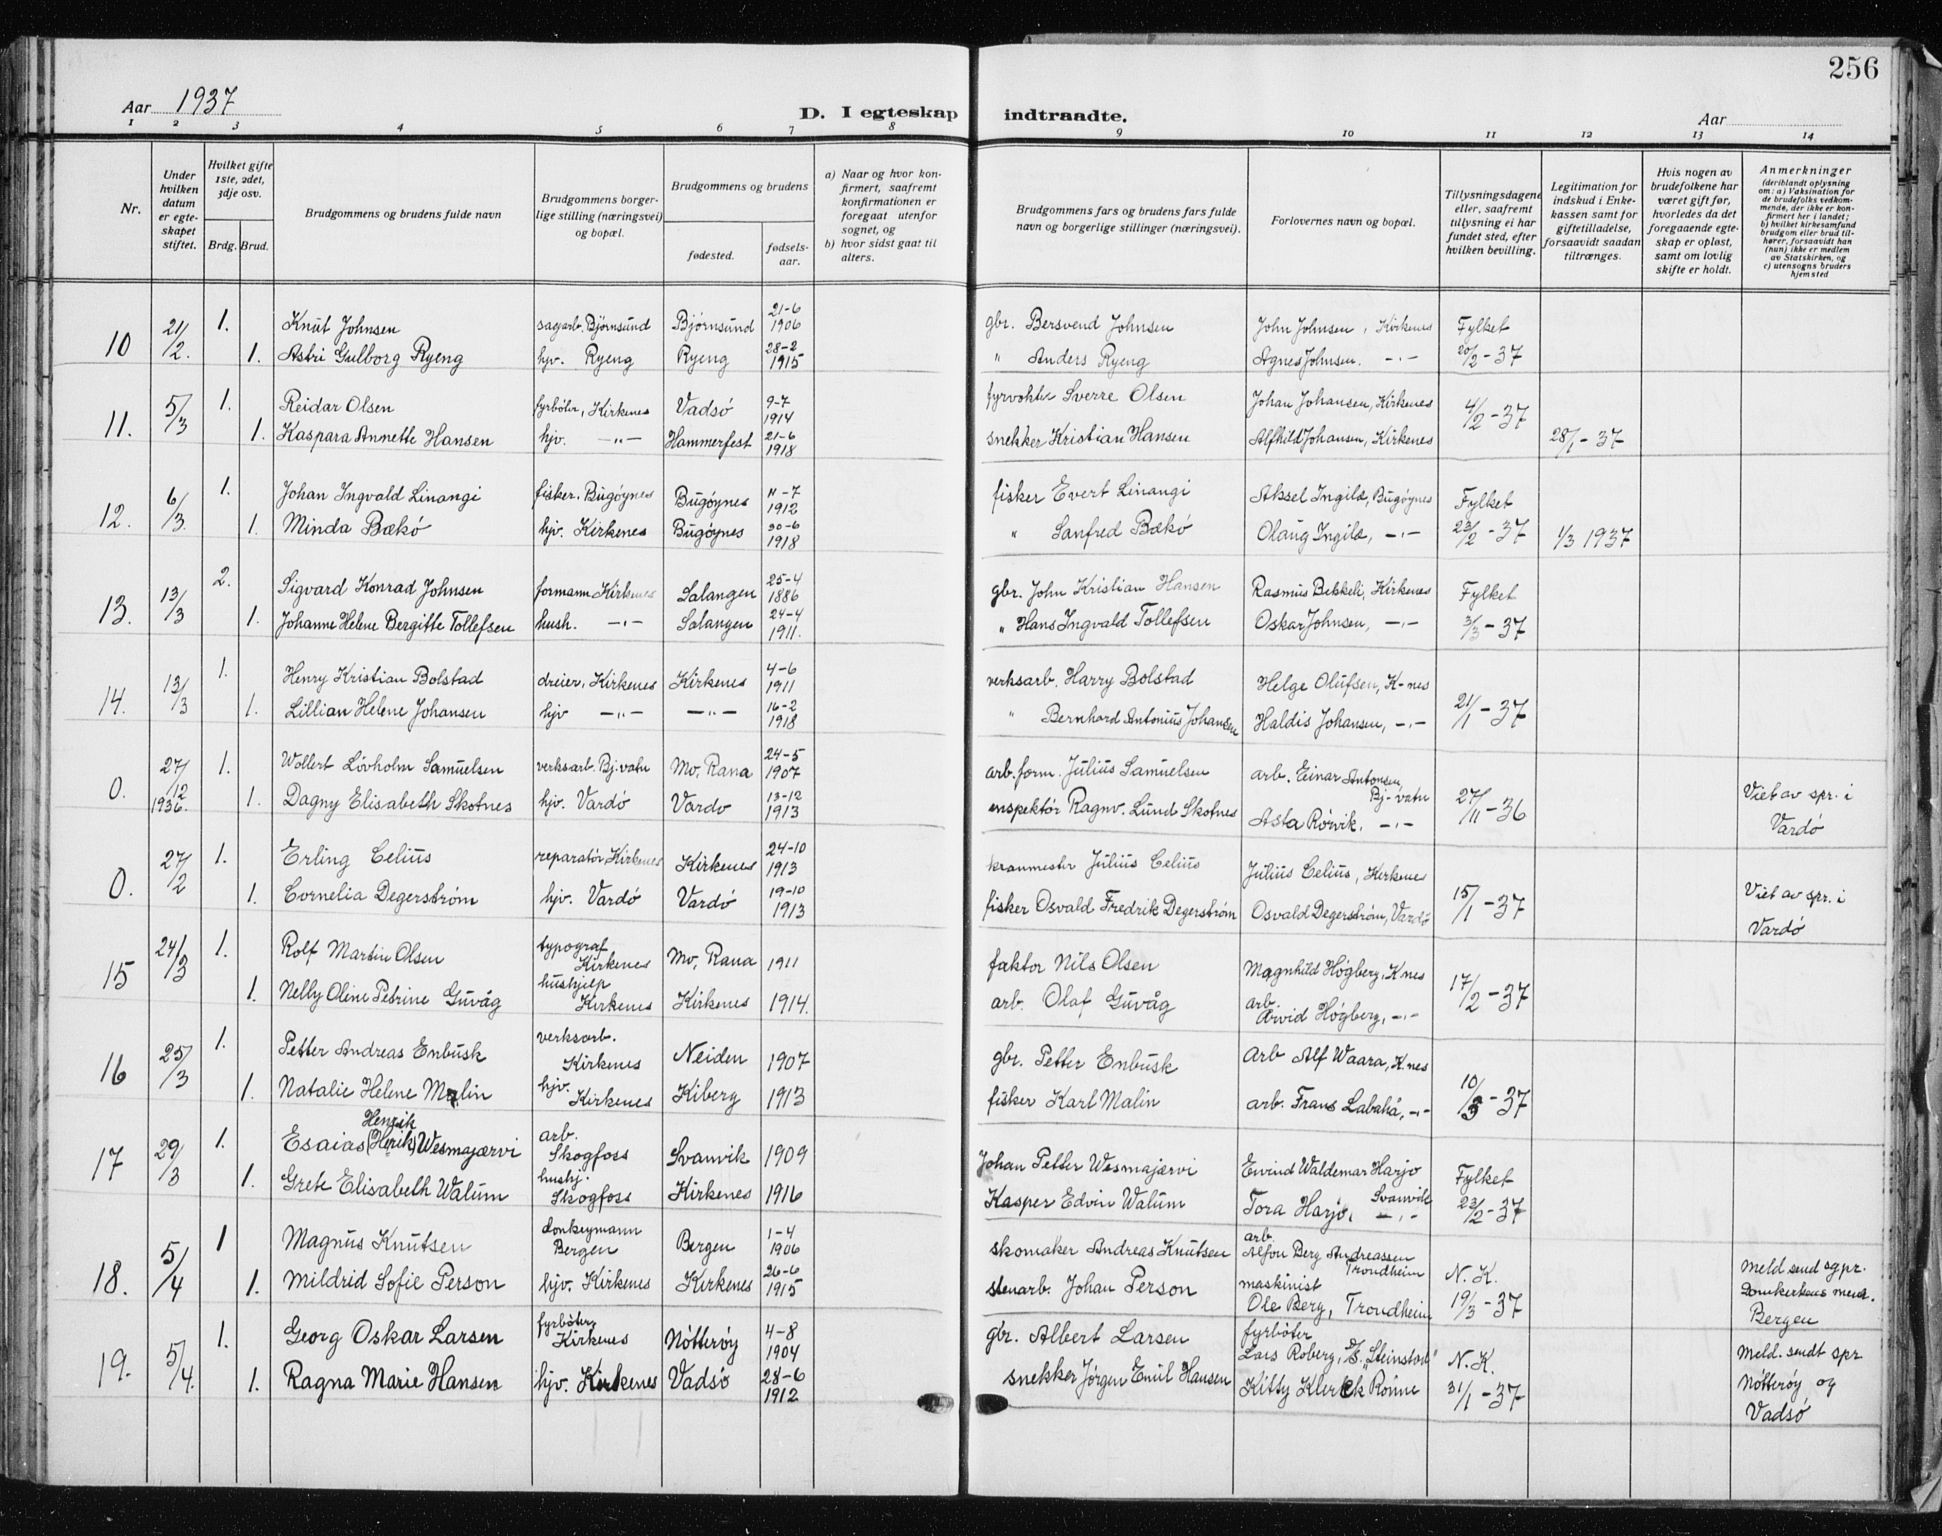 256
Aar 1937
D. I egteskap indtraadte.
Aar
1 2 3 4 5 6 7 8 9 10 11 12 13 14
Nr.
Under hvilken datum er egteskapet stiftet.
Hvilket gifte 1ste, 2det, 3dje osv.
Brdg. Brud.
Brudgommens og brudens fulde navn
Brudgommens borgerlige stilling (næringsvei) og bopæl.
Brudgommens og brudens
fødested.
fødselsaar.
a) Naar og hvor konfirmert, saafremt konfirmationen er foregaat utenfor sognet, og
b) hvor sidst gaat til alters.
Brudgommens fars og brudens fars fulde navn og borgerlige stillinger (næringsvei).
Forlovernes navn og bopæl.
Tillysningsdagene eller, saafremt tillysning ei har fundet sted, efter hvilken bevilling.
Legitimation for indskud i Enkekassen samt for giftetilladelse, forsaavidt saadan tiltrænges.
Hvis nogen av brudefolkene har været gift før, hvorledes da det foregaaende egteskap er opløst, samt om lovlig skifte er holdt.
Anmerkninger
(deriblandt oplysning om: a) Vaksination for de brudefolks vedkommende, der ikke er konfirmert her i landet; b) hvilket kirkesamfund brudgom eller brud tilhører, forsaavidt han (hun) ikke er medlem av Statskirken, og c) utensogns bruders hjemsted
10 21/2. 1. Knut Johnsen sagarb. Bjørnsund Bjørnsund 21-6 1906 gbr. Bersvend Johnsen John Johnsen, Kirkenes Fylket
1. Astri Gulborg Ryeng hjv. Ryeng Ryeng 28-2 1915 " Anders Ryeng Agnes Johnsen. -"- 20/2-37
11. 5/3 1. Reidar Olsen fyrbøter, Kirkenes Vadsø 9-7 1914 fyrvokter Sverre Olsen Johan Johansen, Kirkenes 4/2-37
1. Kaspara Annette Hansen hjv. -"- Hammerfest 21-6 1918 snekker Kristian Hansen Alfhild Johansen, Kirkenes 28/1-37
12. 6/3. 1. Johan Ingvald Linangi fisker. Bugøynes Bugøynes 11-7 1912 fisker Evert Linangi Aksel Ingilæ, Bugøynes Fylket
1. Minda Bækø hjv. Kirkenes Bugøynes 30-6 1918 " Sanfred Bækø Olaug Ingilæ, -"- 23/2-37 1/3 1937
13. 13/3 2. Sigvard Konrad Johnsen formann Kirkenes Salangen 25-4 1886 gbr. John Kristian Hansen Rasmus Bekkeli, Kirkenes Fylket
1. Johanne Helene Bergitte Tollefsen hush. -"- Salangen 24-4 1911. " Hans Ingvald Tollefsen Oskar Johnsen, -"- 3/3-37
14. 13/3 1. Henry Kristian Bolstad dreier, Kirkenes Kirkenes 4-6 1911 verksarb. Harry Bolstad Helge Olufsen, K-nes 21/1-37
1. Lillian Helene Johansen hjv -"- -"- 16-2 1918 " Bernhard Antonius Johansen Haldis Johansen, -"-
0. 27/12 1936. 1. Wollert Løvholm Samuelsen verksarb. Bj.vatn Mo, Rana 24-5 1907 arb.form. Julius Samuelsen arb. Einar Antonsen, Bj-vatn 27/11-36
1. Dagny Elisabeth Skotnes hjv. Vardø Vardø 13-12 1913 enspektør Ragnv. Lund Skotnes Asta Rørvik. -"- Viet av spr. i Vardø
0. 27/2 1. Erling Celius reparatør Kirkenes Kirkenes 24-10 1913 kranmester Julius Celius Julius Celius, Kirkenes 15/1-37
1. Cornelia Degerstrøm hjv. Vardø Vardø 19-10 1913 fisker Osvald Fredrik Degerstrøm Osvald Degerstrøm, Vardø Viet av spr. i Vardø
15 24/3 1. Rolf Martin Olsen typograf Kirkenes Mo, Rana 1911 faktor Nils Olsen Magnhild Høgberg, K.nes 17/2-37
1. Nelly Oline Petrine Guvåg hushjelp Kirkenes Kirkenes 1914. arb. Olaf Guvåg arb. Arvid Høgberg, -"-
16 25/3 1. Petter Andreas Enbusk verksarb. Kirkenes Neiden 1907 gbr. Petter Enbusk Arb Alf Waara, K.nes 10/3-37
1. Natalie Helene Malin hjv. Kirkenes Kiberg 1913 fisker Karl Malin arb. Frans Labahå, -"-
17 29/3 1. Esaias (Henrik) Henrik Wesmajærvi arb. Skogfoss Svanvik 1909 Johan Petter Wesmajærvi Eivind Waldemar Harjo Svanvik Fylket
1. Grete Elisabeth Walum hushj. Skogfoss Kirkenes 1916 Kasper Edvin Walum Tora Harjo, -"- 23/2-37
18. 5/4 1 Magnus Knutsen donkeymann Bergen Bergen 1-4 1906 skomaker Andreas Knutsen arb. Alfon Berg Andreassen Trondheim N.K.
1. Mildrid Sofie Person hjv. Kirkenes Kirkenes 26-6 1915 stenarb. Johan Person maskinist Ole Berg, Trondheim 19/3-37 Meld send sgpr. Domkirkens men. Bergen
19. 5/4. 1. Georg Oskar Larsen fyrbøter Kirkenes Nøtterøy 4-8 1904 gbr. Albert Larsen fyrbøter Lars Roberg, D/S "Steinstad" N.K.
1. Ragna Marie Hansen hjv. Kirkenes Vadsø 28-6 1912 snekker Jørgen Emil Hansen Kitty Klerck Rønne 31/1-37 Meld. sendt spr Nøtterøy og Vadsø